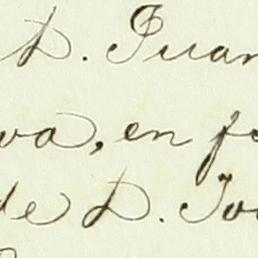 D. Juan
va, en fe
de D. Jo